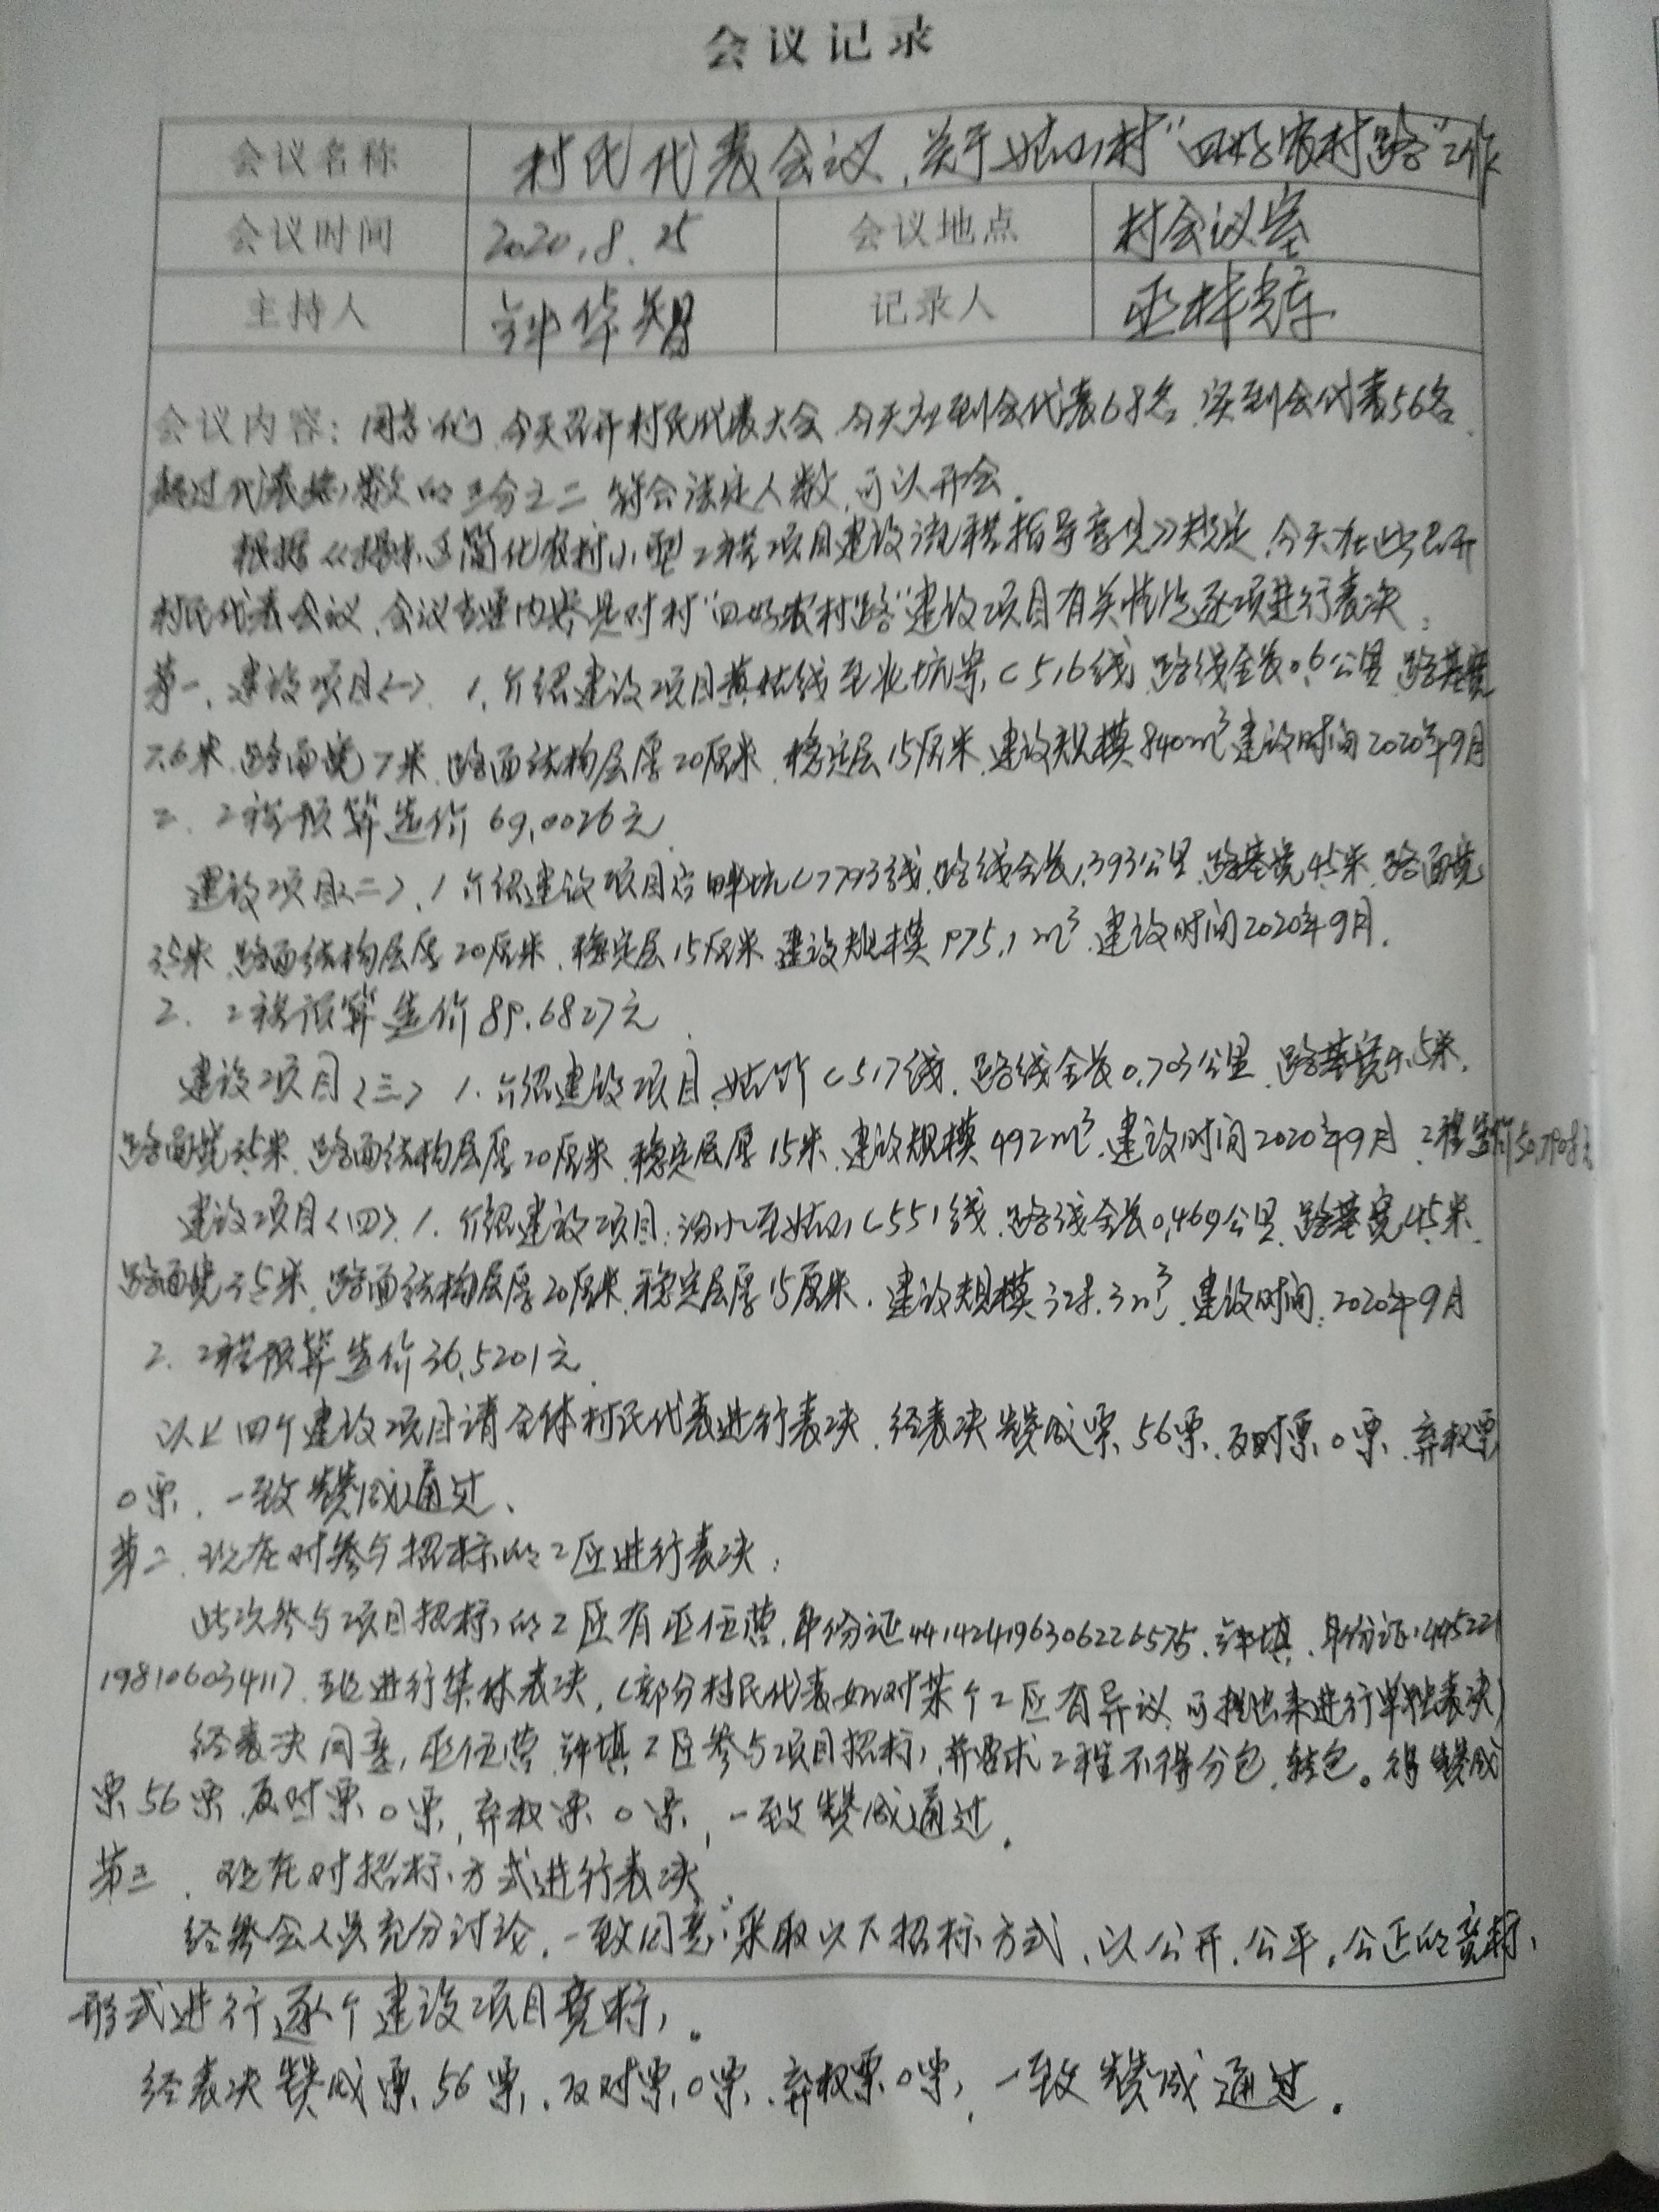 会议记录
会议名称 村民代表会议，关于姑山村“四好农村路”工作
会议时间 2020.8.25 会议地点 村会议室
主持人 钟华智 记录人 巫林
会议内容：同志们，今天召开村民代表大会，今天应到会代表68名，实到会代表56名，
超过代表总数的三分之二，符合法定人数，可以开会。
根据《揭东区简化农村小型工程项目建设流程指导意见》规定，今天在此召开
村民代表会议，会议主要内容是对村“四好农村路”建设项目有关情况逐项进行表决：
第一、建设项目〈一〉、1、介绍建设项目黄姑线至 坑寨C516线，路线全长0.6公里，路基宽
7.6米，路面宽7米，路面结构层厚20厘米，稳定层15厘米，建设规模840m³建设时间2020年9月
2、工程预算造价69.0026元
建设项目〈二〉、1介绍建设项目 坑C7793线，路线全长1.393公里，路基宽4.5米，路面宽
3.5米，路面结构层厚20厘米，稳定层15厘米，建设规模975.1m³，建设时间2020年9月.
2、工程预算造价89.6827元
建设项目〈三〉1、介绍建设项目，姑 C517线，路线全长0.703公里，路基宽4.5米，
路面宽3.5米，路面结构层厚20厘米，稳定层厚15米，建设规模492m³，建设时间2020年9月，工程造价50.7908元
建设项目〈四〉、1、介绍建设项目：汾水至姑山C551线，路线全长0.469公里，路基宽4.5米，
路面宽3.5米，路面结构层厚20厘米，稳定层厚15厘米，建设规模328.3m³，建设时间：2020年9月
2、工程预算造价36.5201元
以上四个建设项目请全体村民代表进行表决，经表决赞成票56票，反对票0票，弃权票
0票，一致赞成通过、
第二、现在对参与招标的工匠进行表决：
此次参与项目招标的工匠有巫伍营，身份证441424196306226575，许填，身份证：445221
198106034117，现进行集体表决，（部分村民代表如对某个工匠有异议，可提出来进行单独表决）
经表决同意，巫伍营，许填工匠参与项目招标，并要求工程不得分包，转包。得赞成
票56票，反对票0票，弃权票0票，一致赞成通过。
第三、现在对招标方式进行表决
经参会人员充分讨论，一致同意：采取以下招标方式，以公开，公平，公正的竞标
形式进行逐个建设项目竞标，。
经表决赞成票56票，反对票0票，弃权票0票，一致赞成通过.